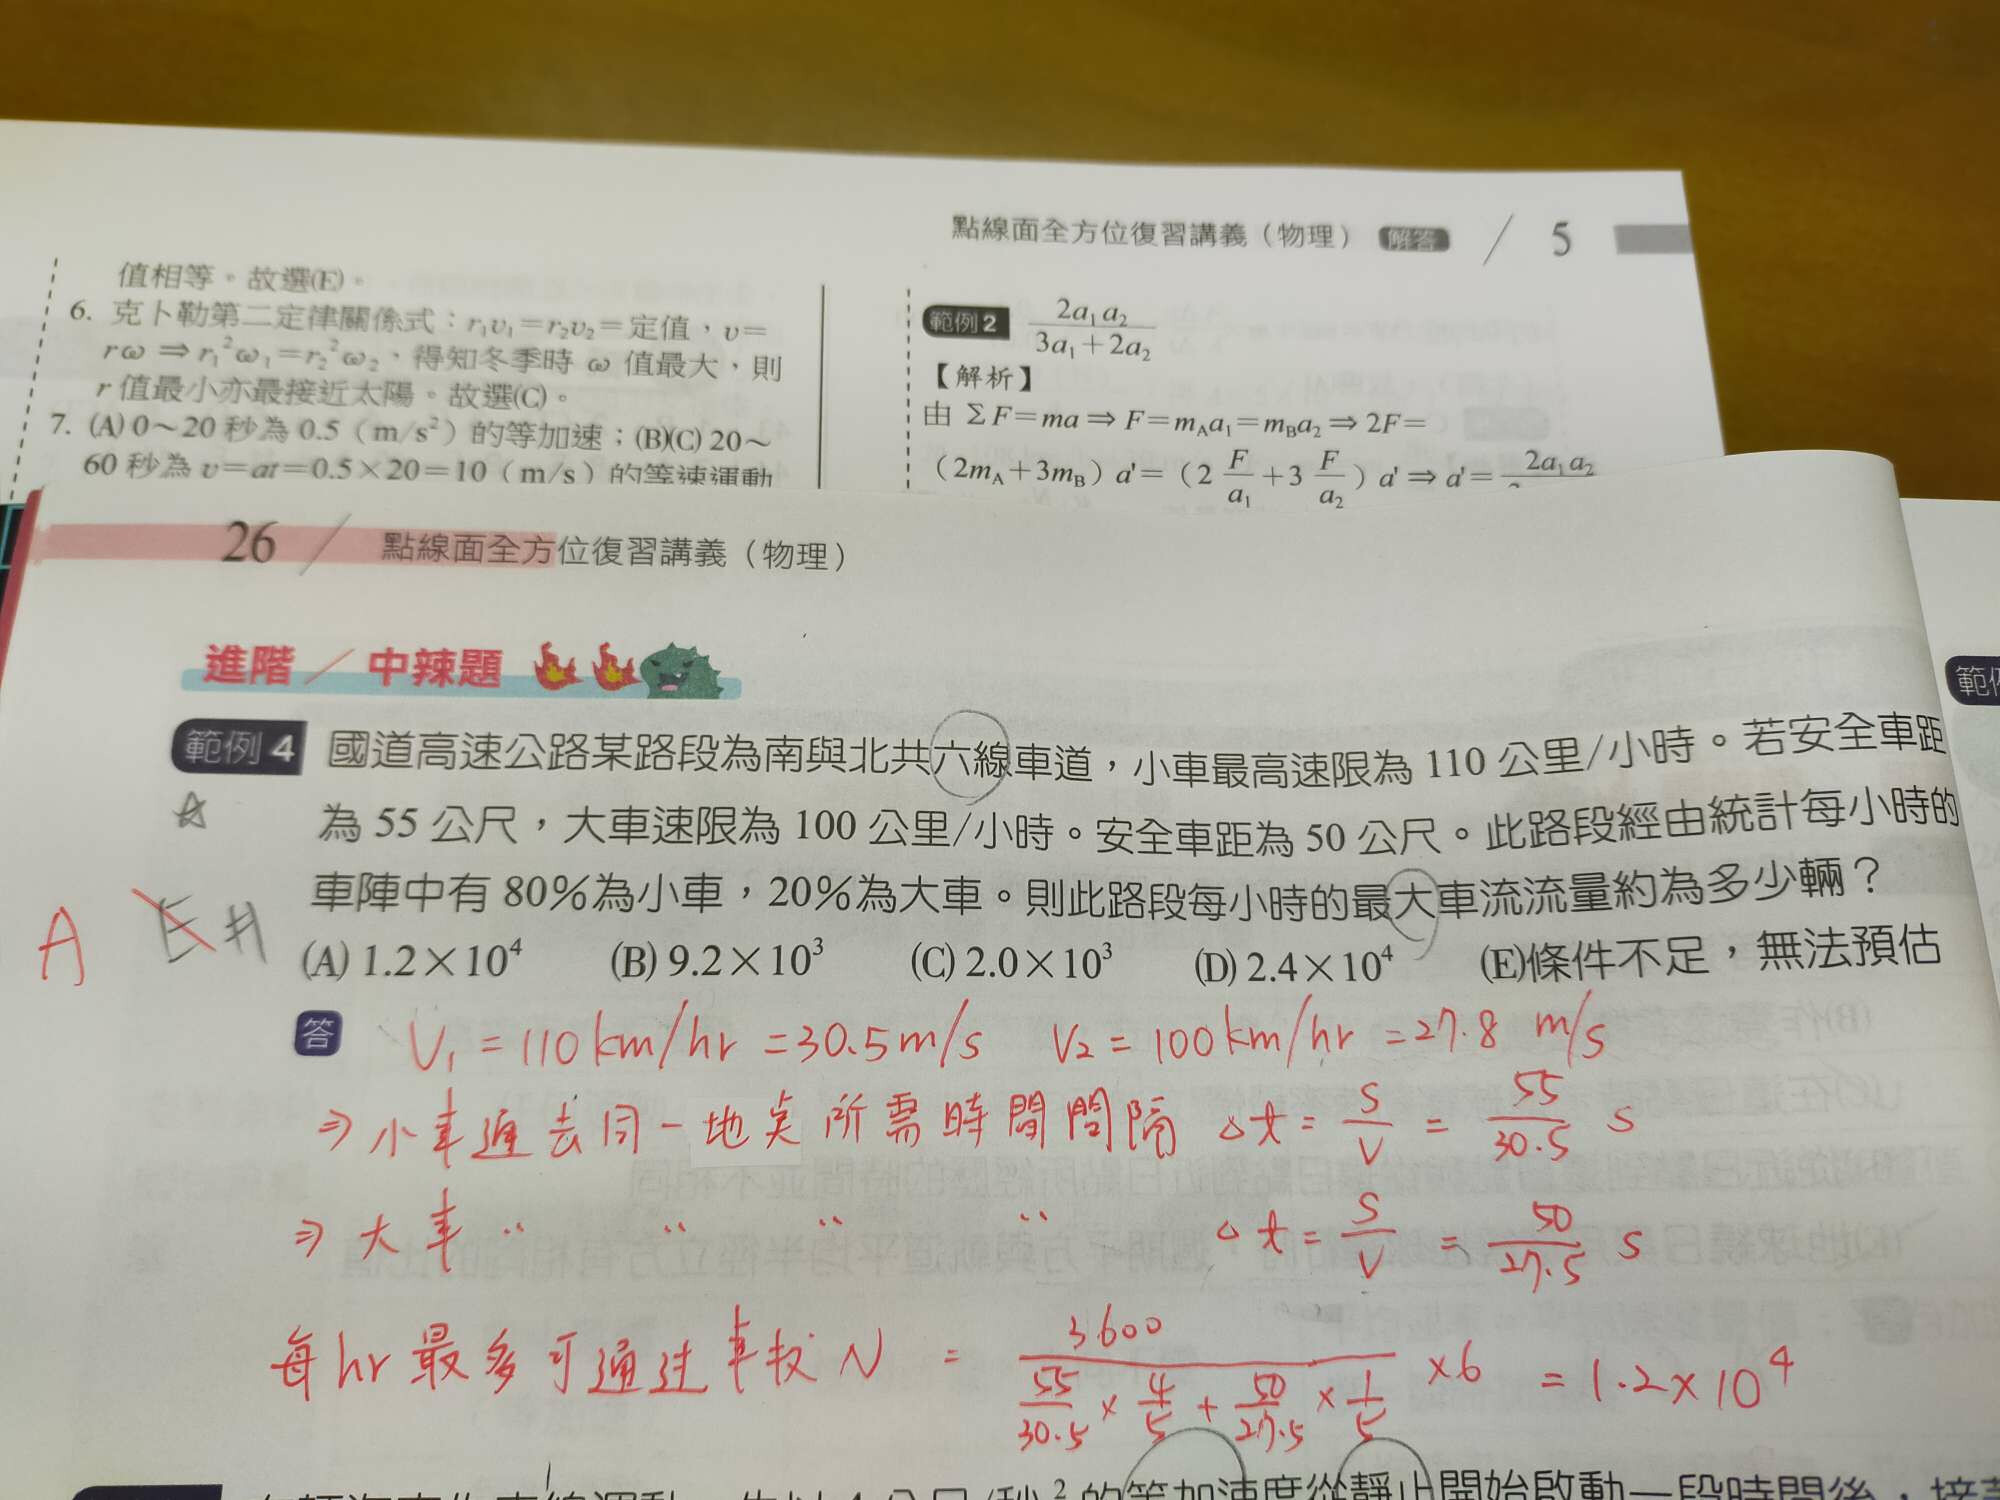 點線面全方位復習講義（物理） 解答 / 5
值相等。故選(E)。
6. 克卜勒第二定律關係式：r₁v₁＝r₂v₂＝定值，v＝
rω ⇒ r₁²ω₁＝r₂²ω₂，得知冬季時 ω 值最大，則
r 值最小亦最接近太陽。故選(C)。
7. (A) 0～20 秒為 0.5（m/s²）的等加速；(B)(C) 20～
60 秒為 v＝at＝0.5×20＝10（m/s）的等速運動
範例2 2a₁a₂/(3a₁＋2a₂)
【解析】
由 ΣF＝ma ⇒ F＝m_Aa₁＝m_Ba₂ ⇒ 2F＝
（2m_A＋3m_B）a'＝（2 F/a₁ ＋3 F/a₂）a' ⇒ a'＝2a₁a₂
26 / 點線面全方位復習講義（物理）
進階／中辣題
範例4 國道高速公路某路段為南與北共六線車道，小車最高速限為 110 公里/小時。若安全車距
為 55 公尺，大車速限為 100 公里/小時。安全車距為 50 公尺。此路段經由統計每小時的
車陣中有 80%為小車，20%為大車。則此路段每小時的最大車流流量約為多少輛？
A E
(A) 1.2×10⁴ (B) 9.2×10³ (C) 2.0×10³ (D) 2.4×10⁴ (E)條件不足，無法預估
答 V₁ = 110 km/hr = 30.5 m/s V₂ = 100 km/hr = 27.8 m/s
⇒ 小車通去同一地点所需時間間隔 △t = S/V = 55/30.5 s
⇒ 大車 〃 〃 〃 〃 △t = S/V = 50/27.5 s
每hr最多可通过車权 N = 3600/(55/30.5 × 4/5 + 50/27.5 × 1/5) ×6 = 1.2×10⁴
的等加速度從靜止開始啟動一段時間後，接著
範例